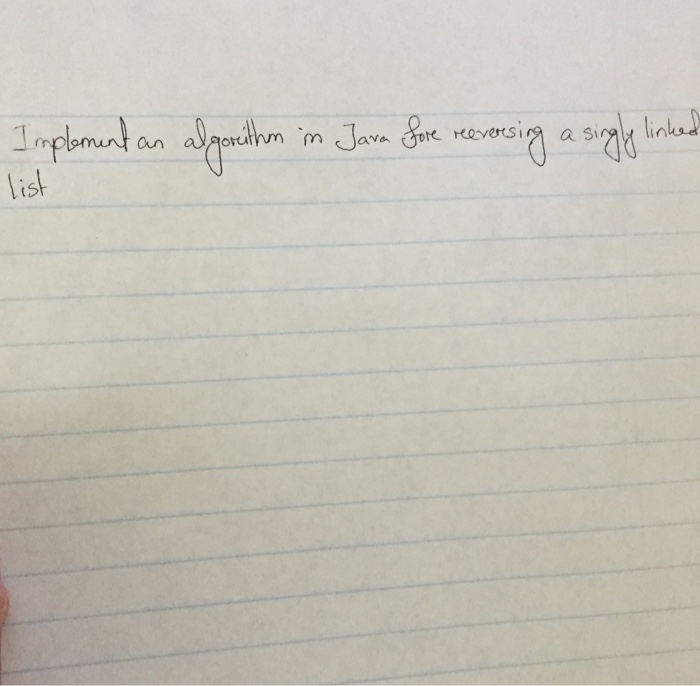 Implement an algorithm in Java for reversing a singly linked
list